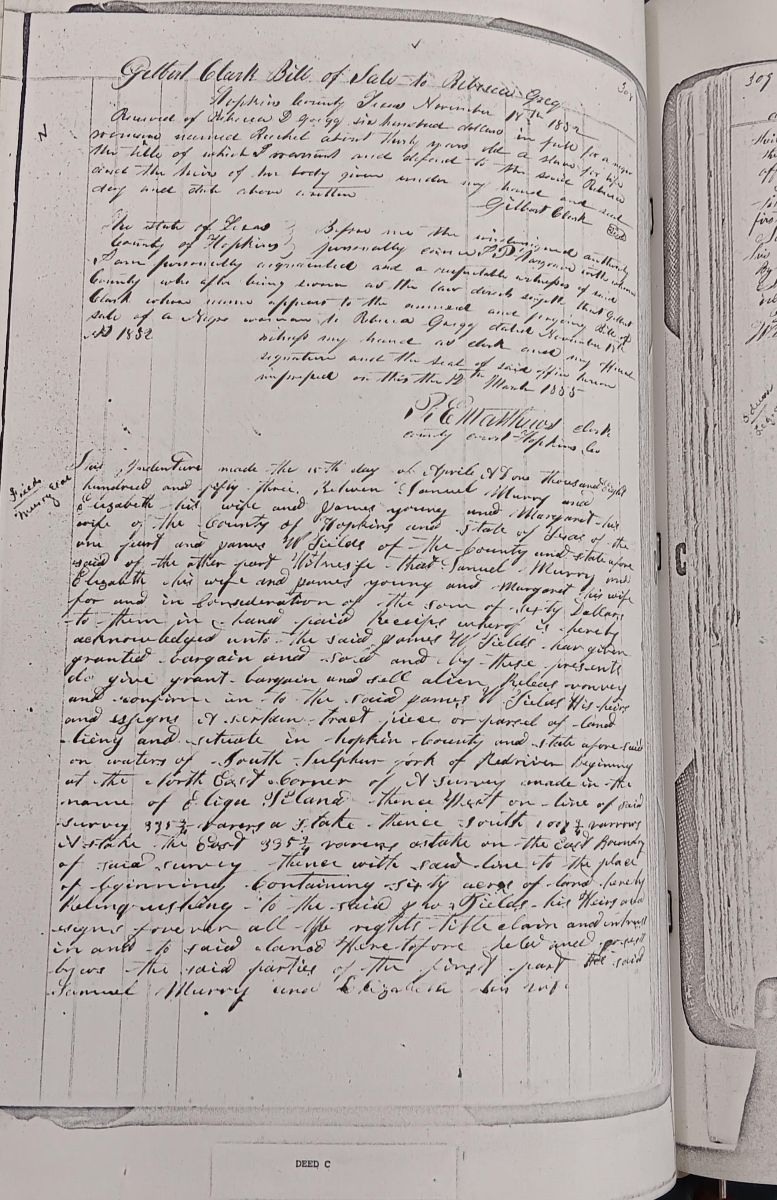 Gilbert Clark Bill of Sale to Rebecca Greg
308
Hopkins County Texas November 18th 1852
Received of Rebecca D Gregg six hundred dollars in full for a negro
woman named Rachel about thirty years old a slave for life
the title of which I warrant and defend to the said Rebecca
and the heirs of her body given under my hand and seal
day and date above written
Gilbert Clark Seal
The state of Texas } Before me the undersigned authority
County of Hopkins } personally came with whom
I am personally acquainted and a respectable witness of said
County who after being sworn as the law directs sayeth that Gilbert
Clark whose name appears to the annexed and Bill of
sale of a Negro woman to Rebecca Gregg dated November 18th
AD 1852 witness my hand as clerk and my
signature and the seal of said office hereon
impressed on this the 12th March 1855
R. E. Matthews clerk
county court Hopkins Co
Fields
Murry &
This Indenture made the day of Aprile AD one thousand Eight
hundred and fifty three, Between Samuel Murry and
Elizabeth his wife and James young and Margaret his
wife of the County of Hopkins and State of Texas of the
one part and James W Fields of the County and state afore
said of the other part Witnesseth that Samuel Murry and
Elizabeth his wife and James young and Margaret his wife
for and in Consideration of the sum of sixty Dollars
to them in hand paid Receips wherof is hereby
acknowledged unto the said James W Fields har given
granted bargain and sold and by these presents
do give grant bargain and sell alien Releas convey
and confirm in to the said James W Fields His heirs
and essigns A sertain tract piece or parsel of land
lieng and situate in hopkin County and state afore said
on waters of South Sulphur fork of Redriver beginning
at the North East Corner of A survey made in the
name of Eligu Filand thence West on line of said
survey 335 3/4 varers a stake thence South 1007 1/4 varrows
A stake the East 335 3/4 varers astake on the East Boundry
of said survey thence with said line to the place
of beginning Containing sixty acres of land hereby
Relinquishing to the said Fields his Heirs and
essigns forever all the rights title claim and intrust
in and to said land Heretofore held and posest
by us the said parties of the first part the said
Samuel Murry and Elizabeth his wife
309
C
DEED C